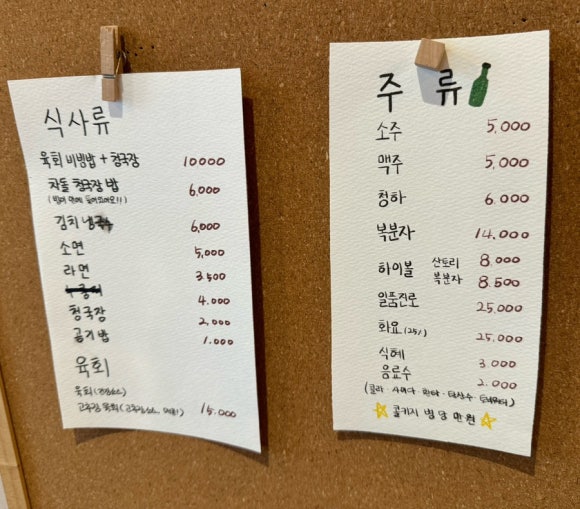 식사류
육회 비빔밥 + 청국장 10000
차돌 청국장 밥 6,000
(밥이 안에 들어있어요!!)
김치 6,000
소면 5,000
라면 3,500
4.000
청국장 2,000
공기밥 1.000
육회
육회
고추장 육회 15.000
주류
소주 5,000
맥주 5,000
청하 6,000
복분자 14,000
하이볼 산토리 8.000
복분자 8.500
일품진로 25,000
화요 (25%) 25.000
식혜 3.000
음료수 2.000
(콜라 · 사이다 · 환타 · 탄산수 · 토닉워터)
콜키지 병당 만원